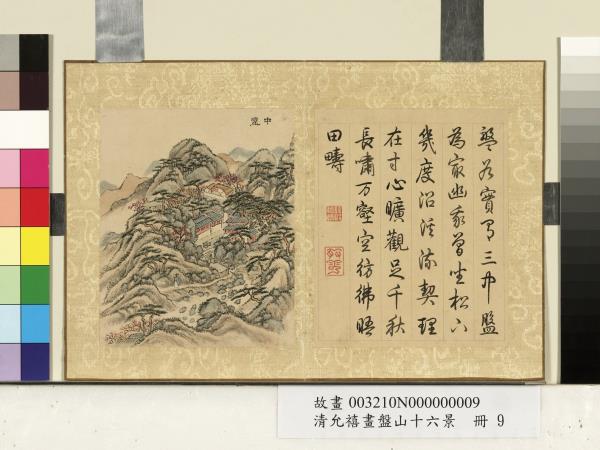 中盤
盤谷實有三中盤
為最幽我曾坐松下
幾度沿溪流契理
在寸心曠觀足千秋
長嘯万壑空彷彿晤
田疇
故畫 003210N000000009
清允禧畫盤山十六景 冊 9